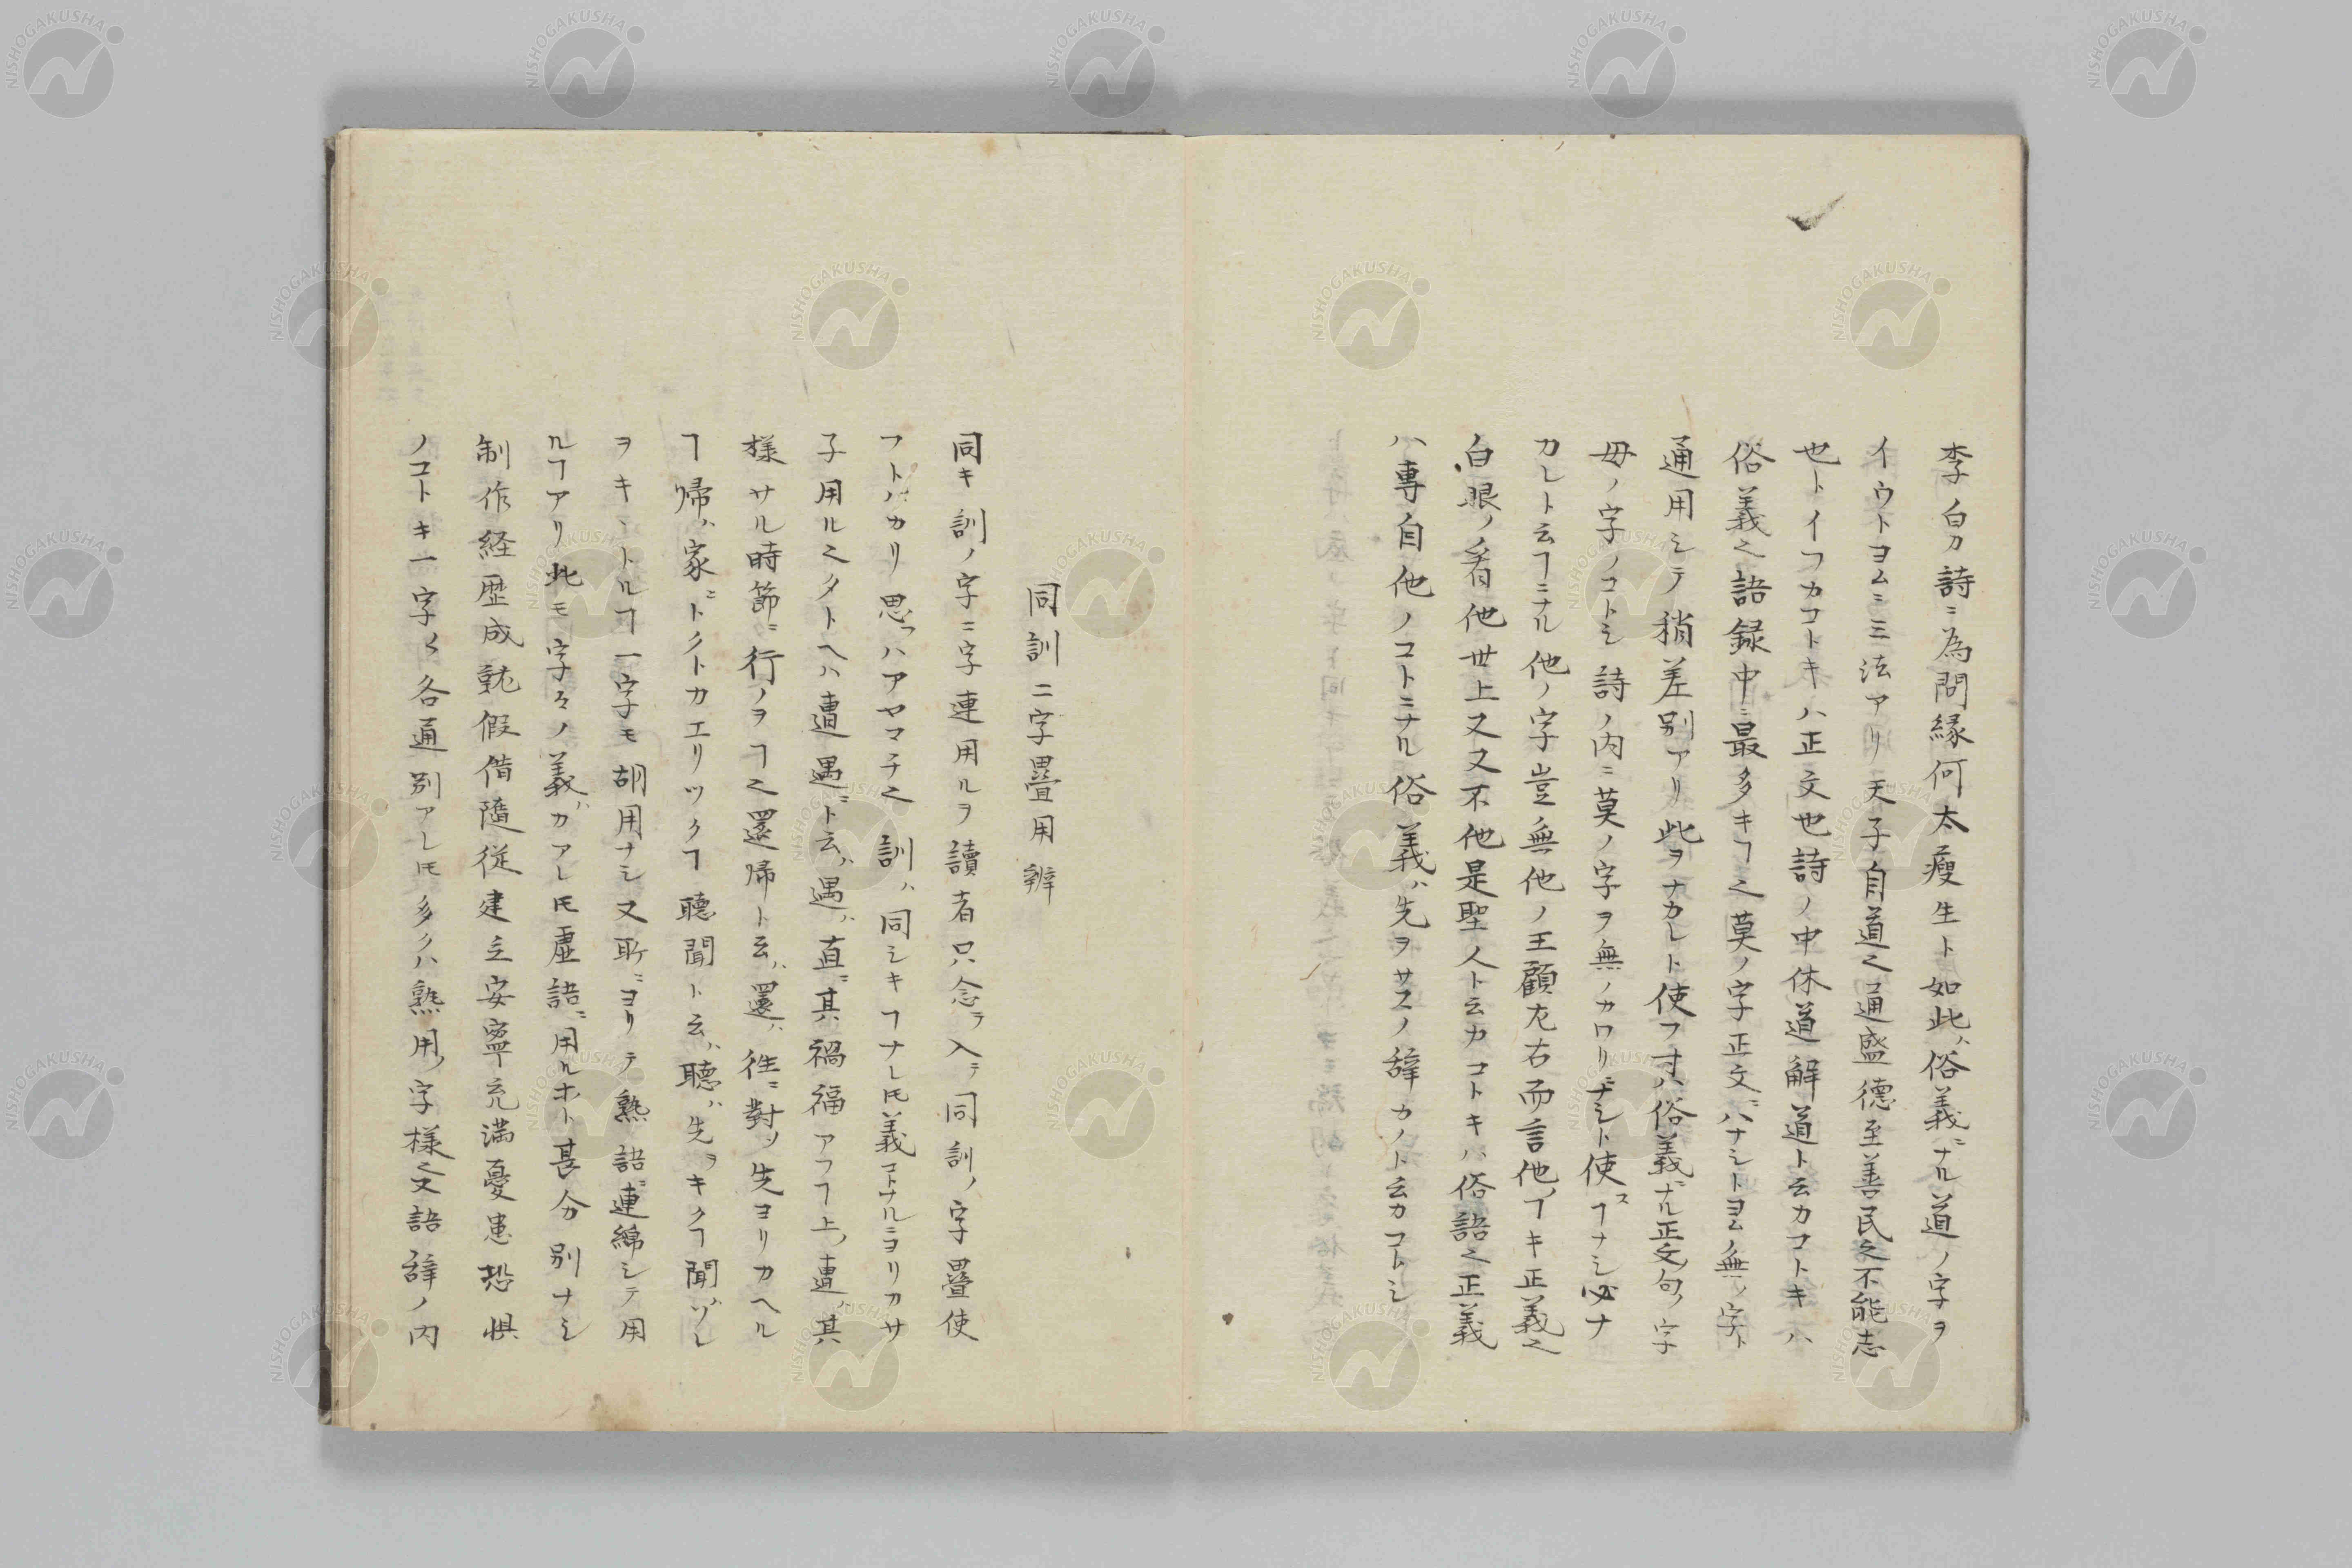 李ノ白カ詩ニ為問縁何太瘦生ト如此ハ俗義ニナル道ノ字ヲ
イウトヨムニ三法アリ天子自道之通盛德至善民之不能志
也トイフカコトキハ正文也詩ノ中休道解道ト云カコトキハ
俗義之語録中ニ最多キヿ之莫ノ字正文ニハナシトヨム無ノ字ト
通用シテ稍差別アリ此ヲナカレト使フ寸ハ俗義ナル正文句ノ字
毋ノ字ノコトシ詩ノ内ニ莫ノ字ヲ無ノカワリニナシト使スヿナシ必ナ
カレト云ヿニナル他ノ字豈無他ノ王顧左右而言他ノヿキ正義之
白眼ノ看他世上又又不他是聖人ト云カコトキハ俗語之正義
ハ專自他ノコトニナル俗義ハ先ヲサスノ辞カノト云カコトシ
同訓二字疊用辨
同キ訓ノ字ニ字連用ルヲ讀者只念ヲ入テ同訓ノ字疊使
フトハカリ思フハアヤマチ之 訓ハ同シキヿナレ𪜈義コトナルニヨリカサ
子用ル之タトヘハ遭遇ト云ハ遇ハ直ニ其禍福アフヿ上ノ遭ハ其
様サル時節ニ行ノヲヿ之還歸ト云ハ還ハ徃ニ對ソ先ヨリカヘル
ヿ帰ハ家ニトクトカエリツクヿ聽聞ト云ハ聽ハ先ヲキクヿ聞ハソレ
ヲキヽトルヿ一字モ胡用ナシ又所ニヨリテ熟語ニ連綿シテ用
ルヿアリ此モ字々ノ義ハカアレ𪜈虚語ニ用ルホト甚分別ナシ
制作経歴成就假借隨從建立安寧充満憂患恐惧
ノコトキ一字〱各通別アレ𪜈多クハ熟用ノ字様之文語辞ノ内
NISHOGAKUSHA